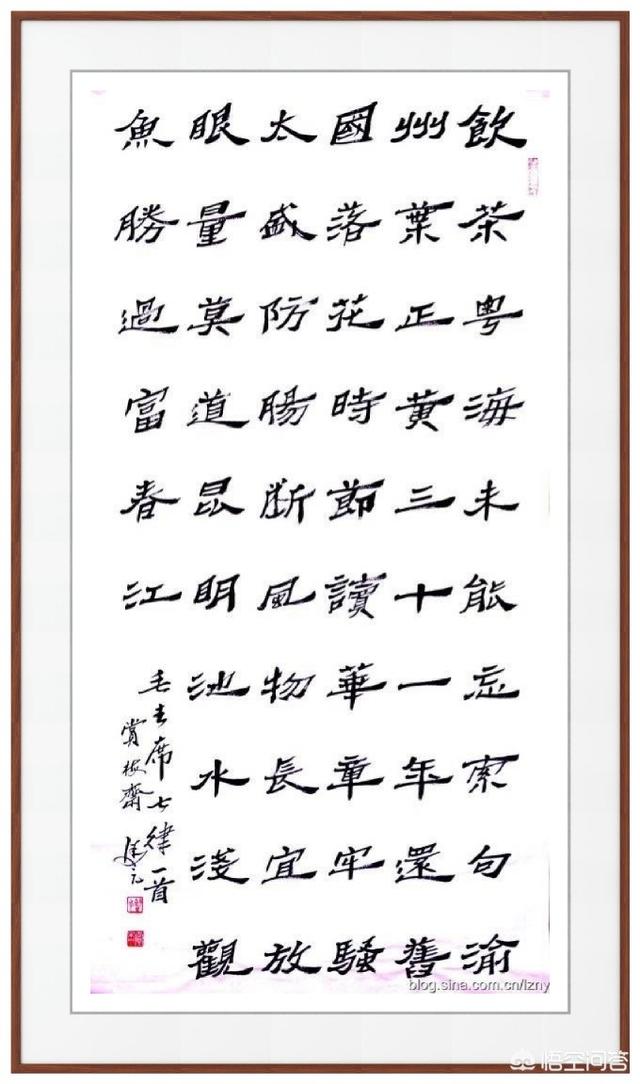 飲茶粤海未能忘索句渝
州葉正黄三十一年還舊
國落花時節讀華章牢騷
太盛防腸斷風物長宜放
眼量莫道昆明池水淺觀
魚勝過富春江
毛主席七律一首
賞梅齋
blog.sina.com.cn/lzny
悟空问答